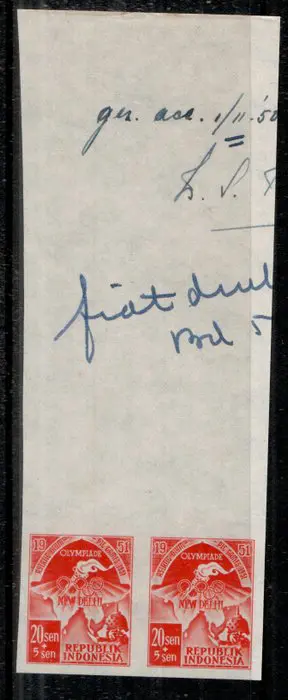 ger. acc. 1/11 '50
fiat druk
19 51
OLYMPIADE
NEW DELHI
20 sen
+
5 sen
REPUBLIK
INDONESIA
19 51
OLYMPIADE
NEW DELHI
20 sen
+
5 sen
REPUBLIK
INDONESIA